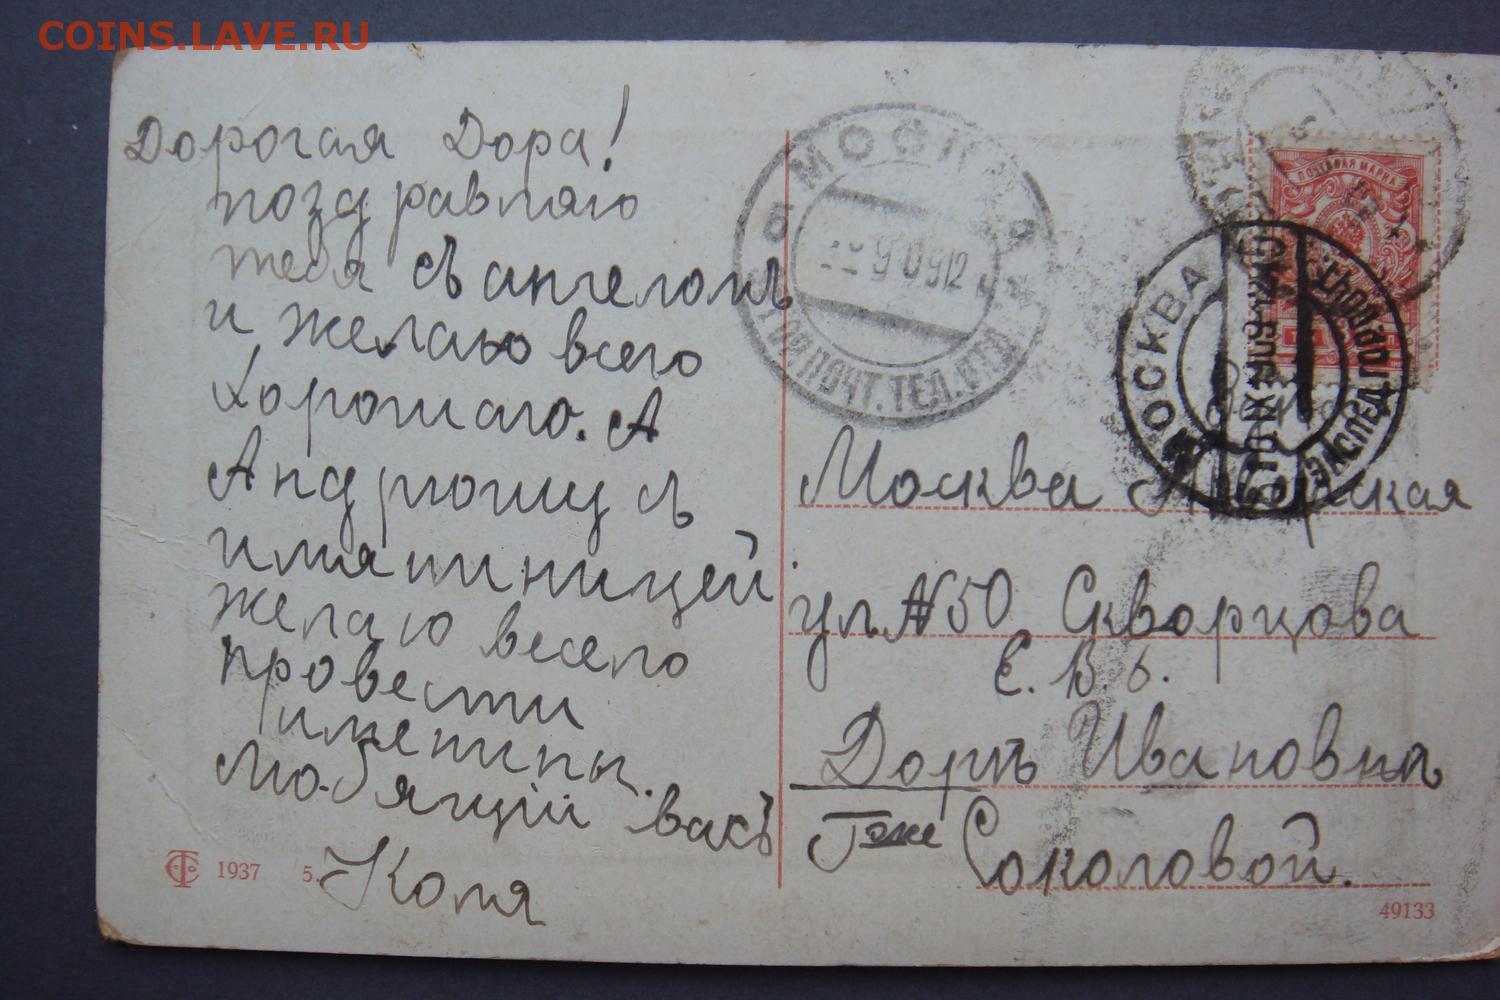 COINS.LAVE.RU
Дорогая Дора!
поздравляю
тебя съ ангеломъ
и желаю всего
хорошаго. А
Андрюшу съ
имянинницей.
желаю весело
провести
именины.
Любящій васъ
Коля
1937 5.
МОСКВА
6
9 09 12
ГОР. ПОЧТ. ТЕЛ. ОТД.
ПОЧТОВАЯ МАРКА
МОСКВА
Москва Тверская
ул. № 50, Скворцова
Е. В. б.
Доръ Ивановна
Гже Соколовой.
49133